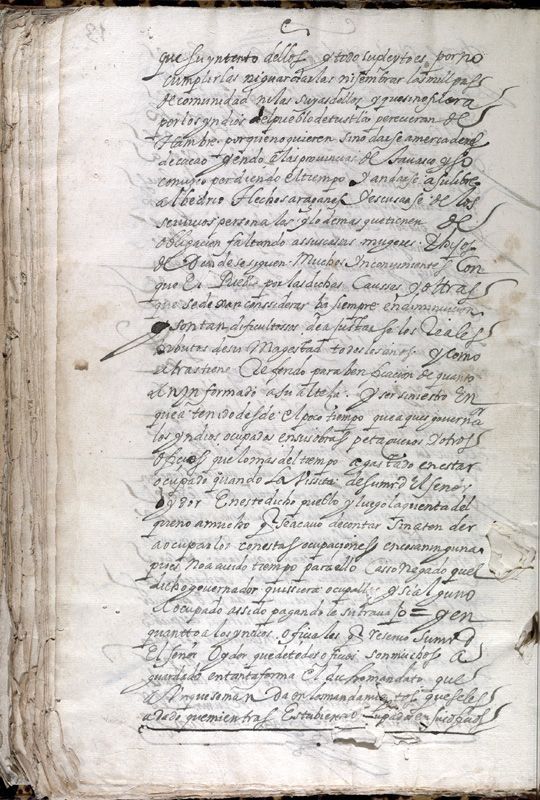 que su yntento dellos y todo su deytres por no
cumplirlas ni guardarlas ni sembrar las milpas
de comunidad ni las suyas dellos y que si no fuera
por los yndios del pueblo de tustla perecieran de
Hambre porque no quieren sino darse a mercaderes
de cacao yendo a las provincias de Tavasco y so
conusco perdiendo el tiempo y andarse a su libre
albedrio Hechos araganes y escusarse de los
servicios personales y lo demas que tienen de
obligacion faltando a sus casas mugeres E hijos
de donde se siguen Muchos Inconvinientes Con
que El Pueblo por las dichas Caussas y otras
que se dexan considerar ba siempre en diminucion
y son tan dificultosos de ajustarse los Reales
tributos de su Magestad todos los años y como
atras tiene Referido para berificacion de quanto
an ynformado a su alteza y ser siniestro En
que a tenido desde El poco tiempo que a que govierna
los yndios ocupados en sus obras petapueros y otros
oficios que lo mas del tiempo se a gastado en estar
ocupado quando La Vissita de su mrd El señor
oydor En este dicho pueblo y luego la quenta del
que no a mucho q se acavo de contar sin aten der
a ocuparlos con estas ocupaciones en cosa ninguna
pues no a avido tiempo para ello Casso negado quel
dicho governador quissiera ocupalles y si alguno
a ocupado a ssido pagandole su travajo = y en
quantto a los yndios oficiales q reservo su mrd
El señor Oydor que de todos oficios son muchos a
guardado en tanta forma El auto mandato que
aunque se manda en los mandamientos que se les
a dado que mientras Estubieren ocupados en sus oficios